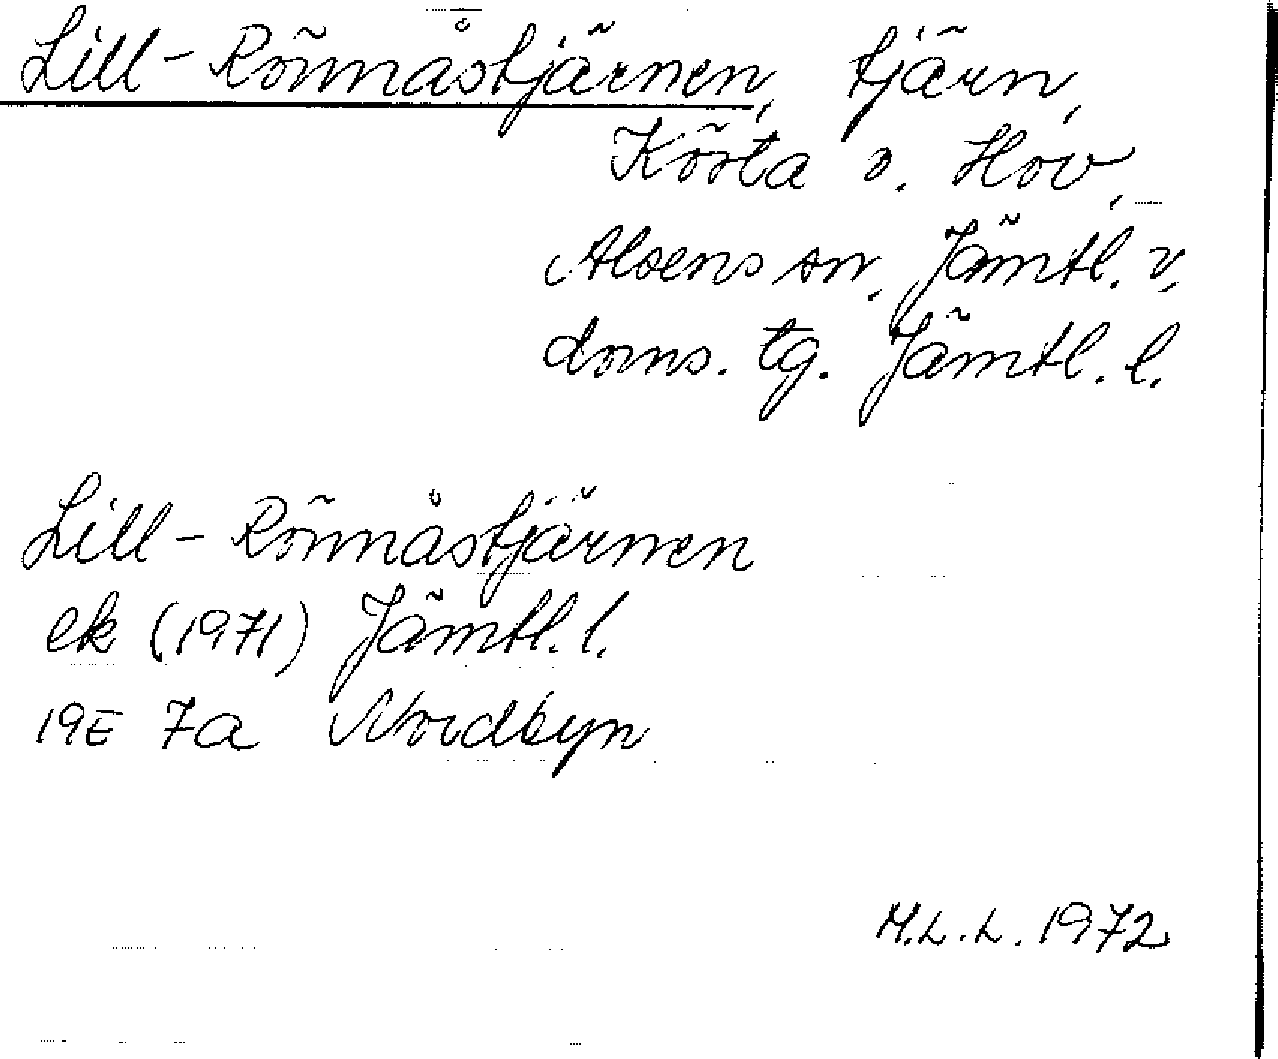 Lill-Rönnåstjärnen, tjärn,
Kösta o. Hov,
Alsens sn, Jämtl. v.
doms. tg. Jämtl. l.
Lill-Rönnåstjärnen
ek (1971) Jämtl. l.
19E 7a Nordbyn
M.L.L. 1972